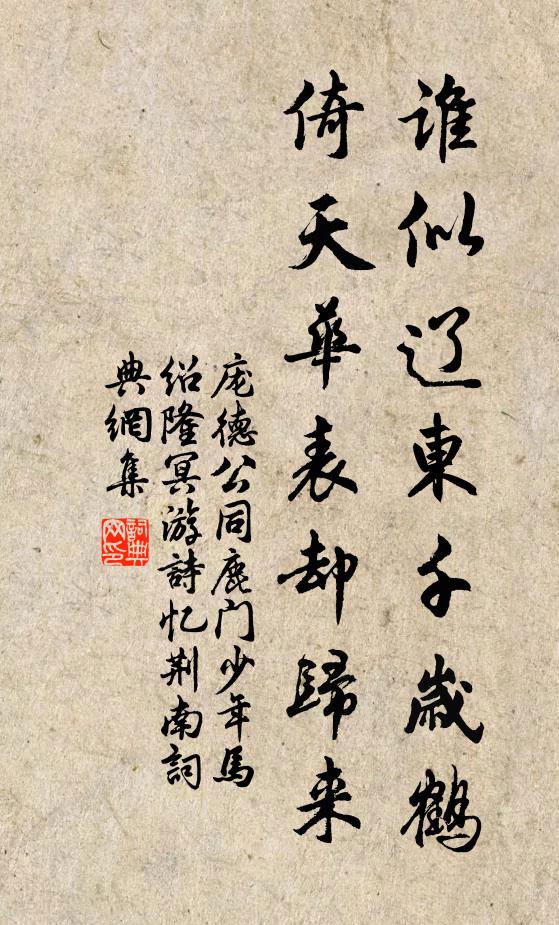 誰似辽東千歲鶴
倚天華表却歸来
庞德公同鹿门少年馬
绍隆冥游詩忆荆南詞
典網集
詞典网印